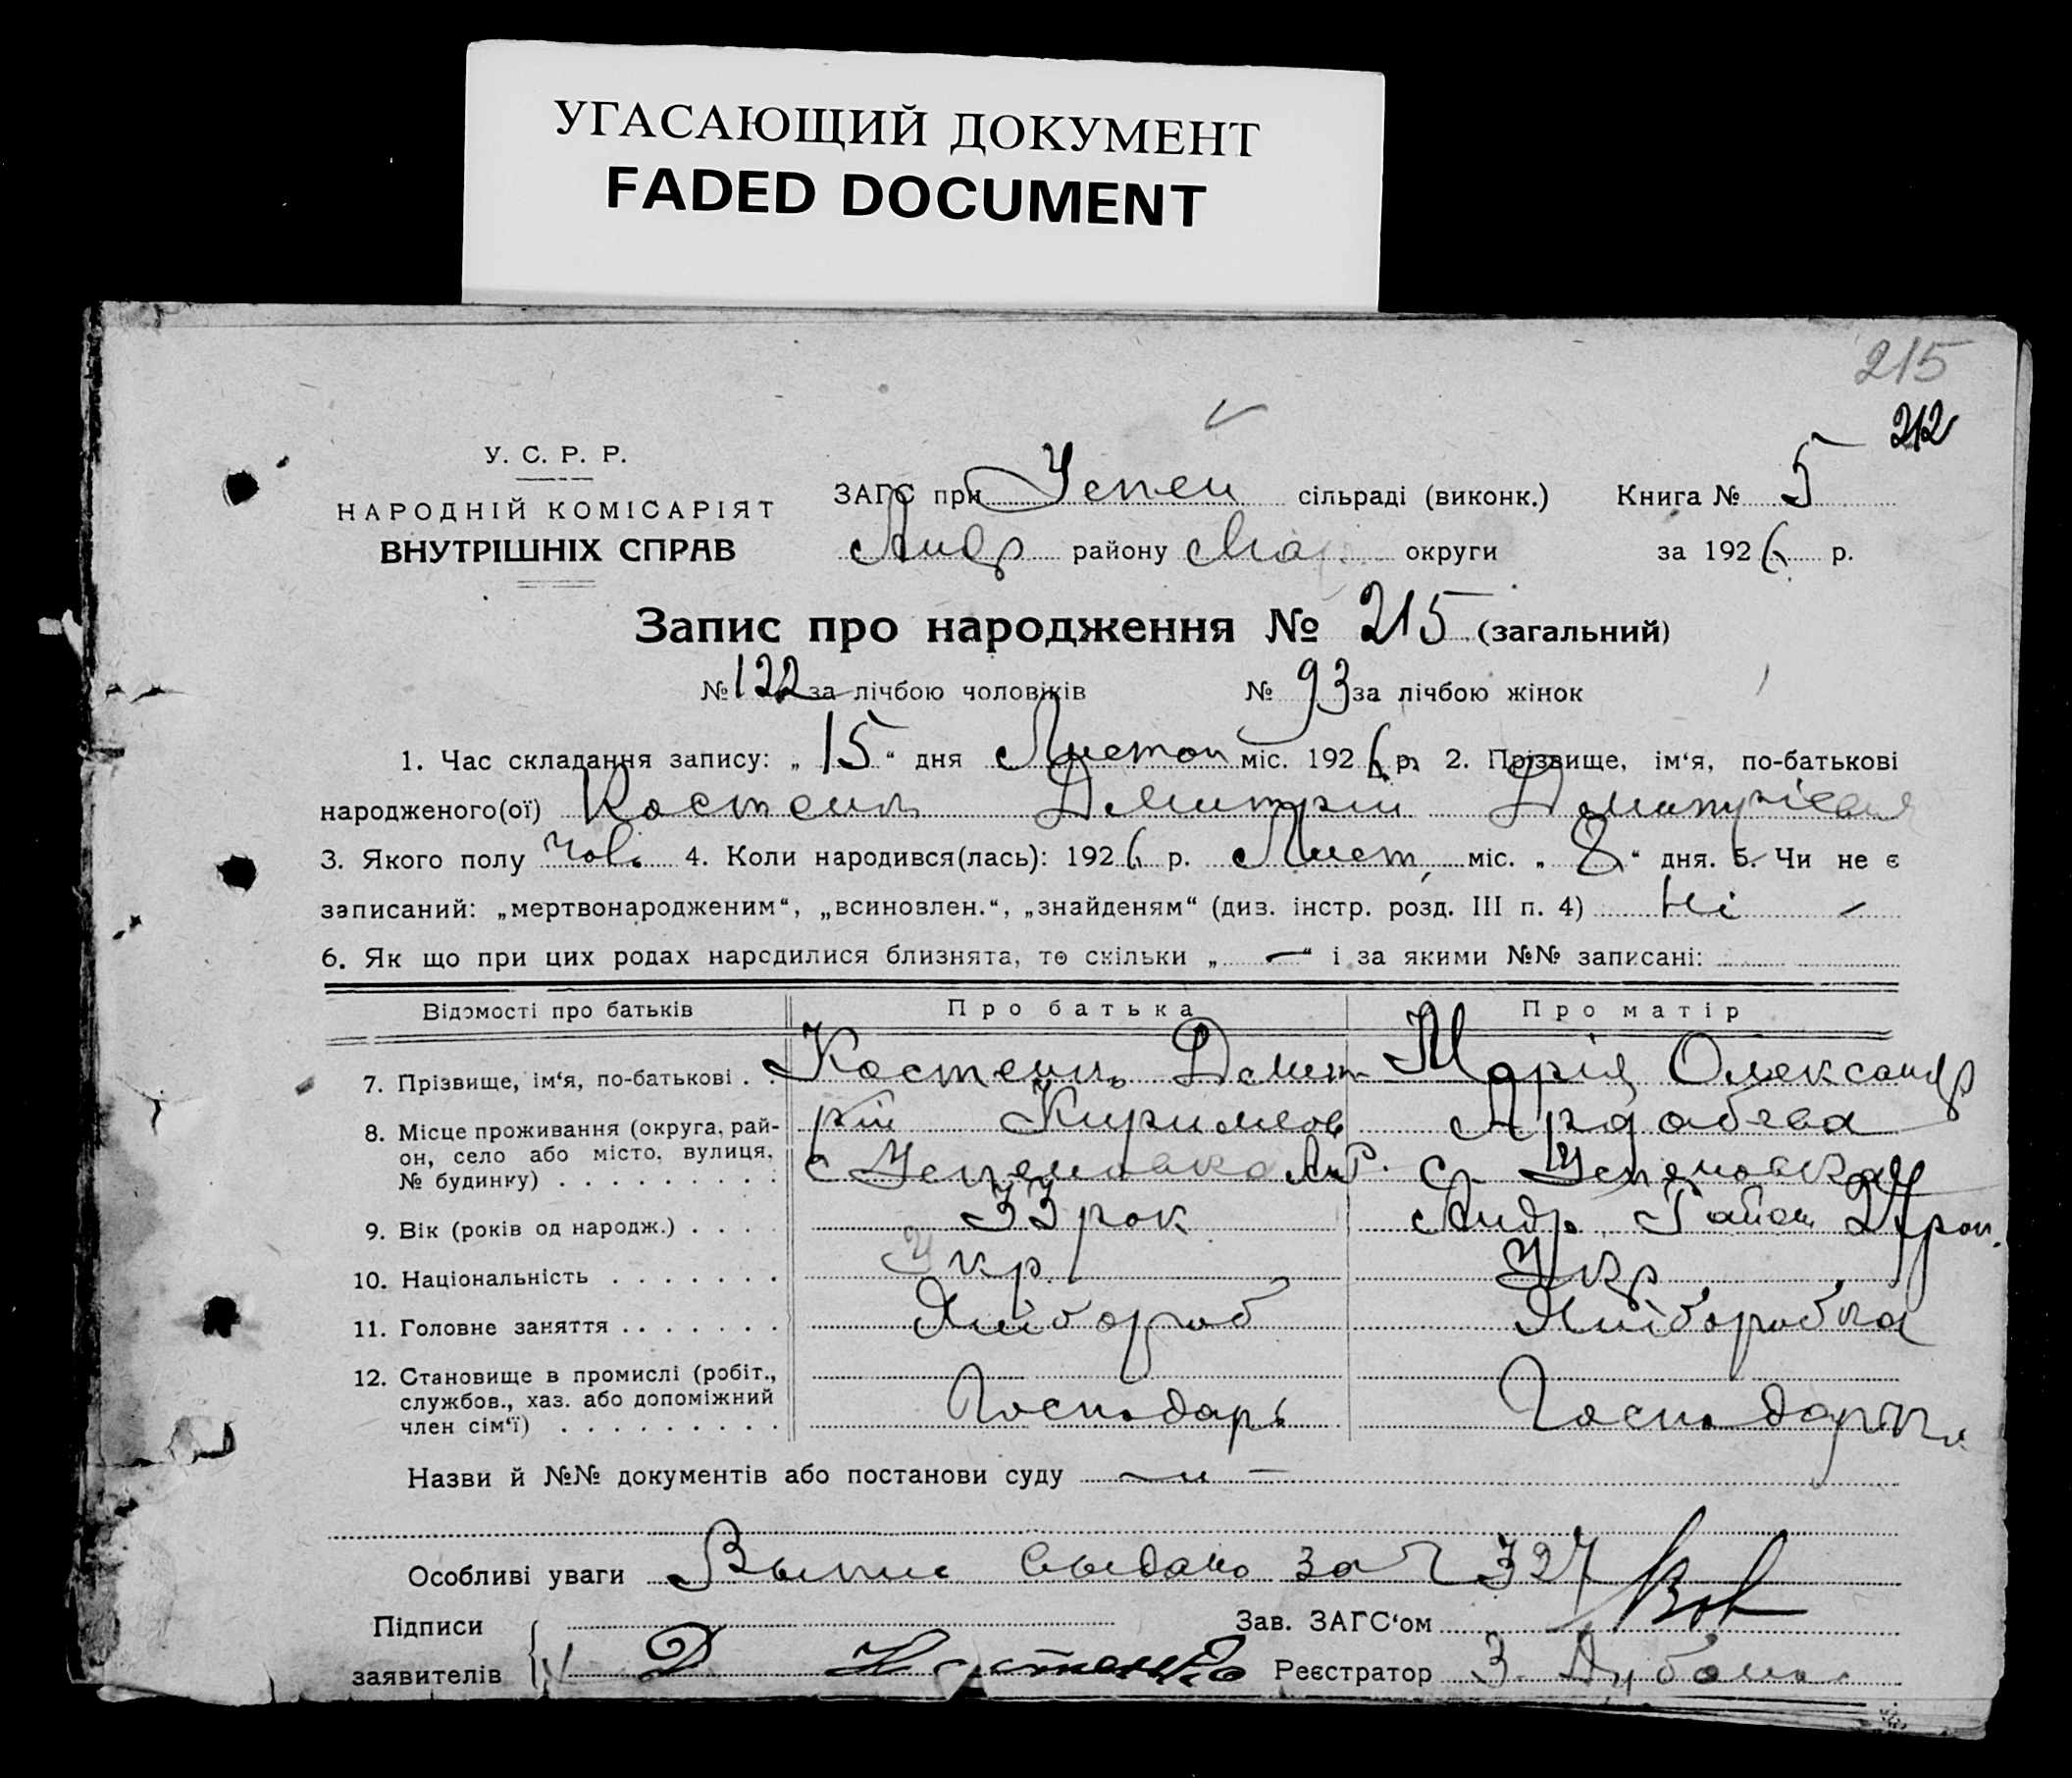 УГАСАЮЩИЙ ДОКУМЕНТ
FADED DOCUMENT
215
212
У. С. Р. Р.
НАРОДНІЙ КОМІСАРІЯТ
ВНУТРІШНІХ СПРАВ
ЗАГС при Успен сільраді (виконк.) Книга № 5
Андр району Мар округи за 1926 р.
Запис про народження № 215 (загальний)
№ 122 за лічбою чоловіків № 93 за лічбою жінок
1. Час складання запису: „ 15 “ дня Листоп міс. 1926 р. 2. Прізвище, ім‘я, по-батькові
народженого(ої) Костенко Дмитрій
3. Якого полу чов. 4. Коли народився(лась): 1926 р. Лист, міс. „ 8 “ дня. 5. Чи не є
записаний: „мертвонародженим“, „всиновлен.“, „знайденям“ (див. інстр. розд. III п. 4) Ні
6. Як що при цих родах народилися близнята, то скільки „ — “ і за якими №№ записані:
Відомості про батьків Про батька Про матір
7. Прізвище, ім‘я, по-батькові . . Костенко Дмит- Марія Олександр
рій
8. Місце проживання (округа, рай-
он, село або місто, вулиця,
№ будинку) . . . . . . . . . с Успеновка Ан.Р. с. Успеновка
9. Вік (років од народж.) . . . . 33 рок Андр. Район 27 рок.
10. Національність . . . . . . . Укр. Укр
11. Головне заняття . . . . . . . Хлібороб Хліборобка
12. Становище в промислі (робіт.,
службов., хаз. або допоміжний
член сім‘ї) . . . . . . . . . Господарь
Назви й №№ документів або постанови суду
Особливі уваги Выпис выдано за № 327
Підписи Зав. ЗАГС‘ом
заявителів Д Костенко Реєстратор З.